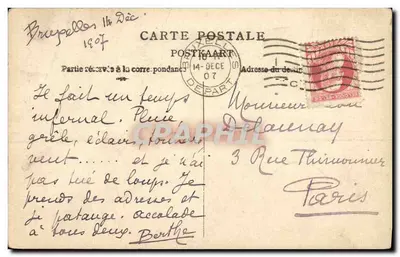 Bruxelles 14 Déc.
1907
CARTE POSTALE
POSTKAART
Partie réservée à la corre pondance
Adresse du
BRUXELLES
14-DECE
07
DEPART
Il fait un temps
infernal. Pluie
grêle, éclairs, tonnerre
vent ...... et je n'ai
pas tué de loups. Je
prends des adresses et
je patauge. accolade
à tous deux. Berthe
Monsieur
Launay
3 Rue Thimonnier
Paris
CPARAMA